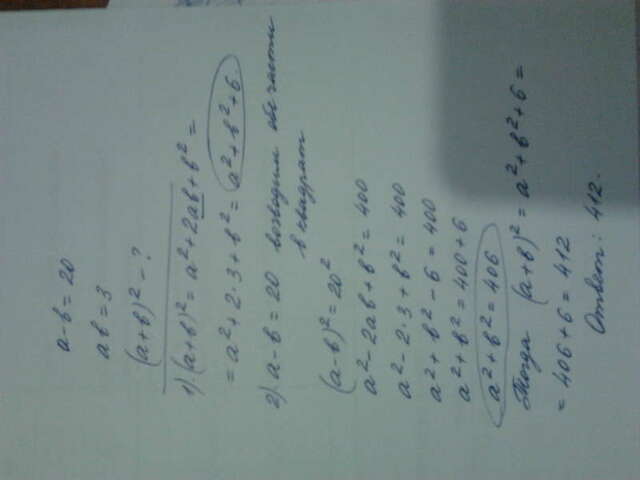 a-b=20
ab=3
(a+b)²-?
1) (a+b)²=a²+2ab+b²=
=a²+2·3+b²=a²+b²+6.
2) a-b=20 возводим обе части
в квадрат
(a-b)²=20²
a²-2ab+b²=400
a²-2·3+b²=400
a²+b²-6=400
a²+b²=400+6
a²+b²=406
Тогда (a+b)²=a²+b²+6=
=406+6=412
Ответ: 412.